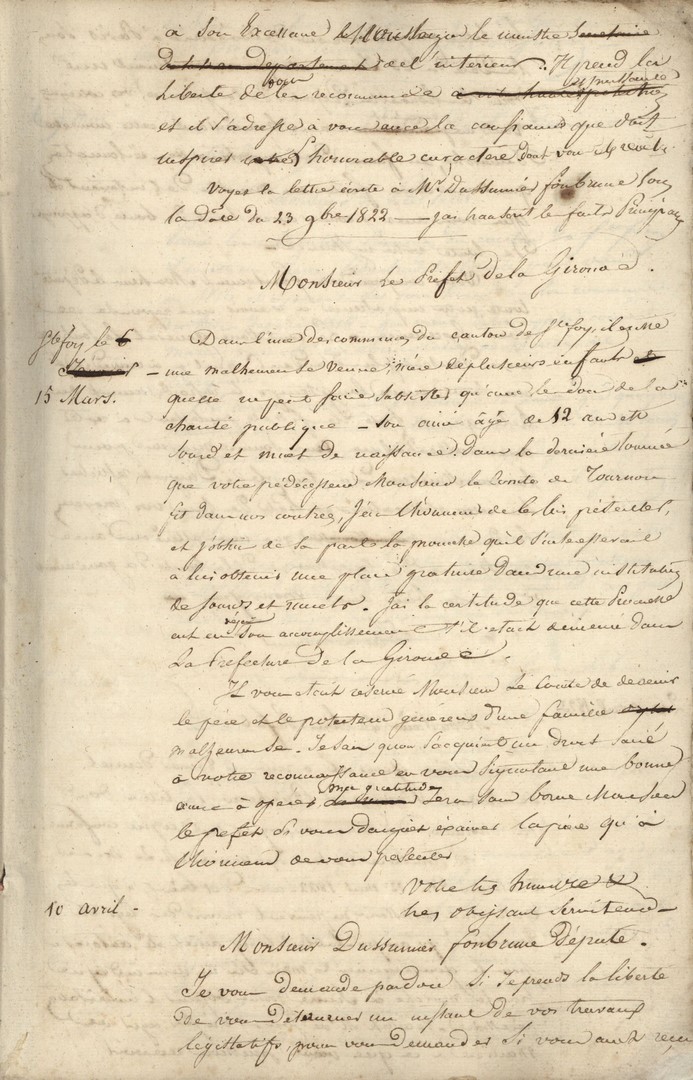 à Son Excellence le ministre
de l'interieur. Il prend la
liberté de vous recommander
et il s'adresse à vous avec la confiance que doit
inspirer l'honorable caractere dont vous
Voyez la lettre écrite à Mr. Dussumier fonbrune sous
la date du 23 9bre 1822
Monsieur Le Préfet de la Gironde.
Ste foy le 6
15 Mars.
Dans l'une des communes du canton de Ste foy, il existe
une malheureuse veuve, mère de plusieurs enfants
quelle ne peut faire subsister qu'avec le don de la
charité publique - son ainé âgé de 12 ans est
sourd et muet de naissance. Dans la derniere tournée
que votre prédécesseur Monsieur le Comte de Tournon
fit dans nos contrées, j'eus l'honneur de le lui présenter,
et j'obtins de sa part la promesse qu'il s'interesserait
à lui obtenir une place gratuite dans une institution
de sourds et muets. J'ai la certitude que cette Promesse
eut eu déjà son accomplissement s'il etait demeuré dans
La Préfecture de la Gironde.
Il vous etait reservé Monsieur Le Comte de devenir
le père et le protecteur généreux d'une famille
malheureuse. Je sais qu'on s'acquiert un droit sacré
à votre reconnaissance en vous signalant une bonne
œuvre à opérer ma gratitude sera sans borne Monsieur
le prefet si vous daignez la prière qu'a
l'honneur de vous presenter
Votre très humble &
très obeissant Serviteur
10 avril -
Monsieur Dussumier fonbrune Député.
Je vous demande pardon si je prends la liberté
de vous détourner un instant de vos travaux
législatifs, pour vous demander si vous avez reçu